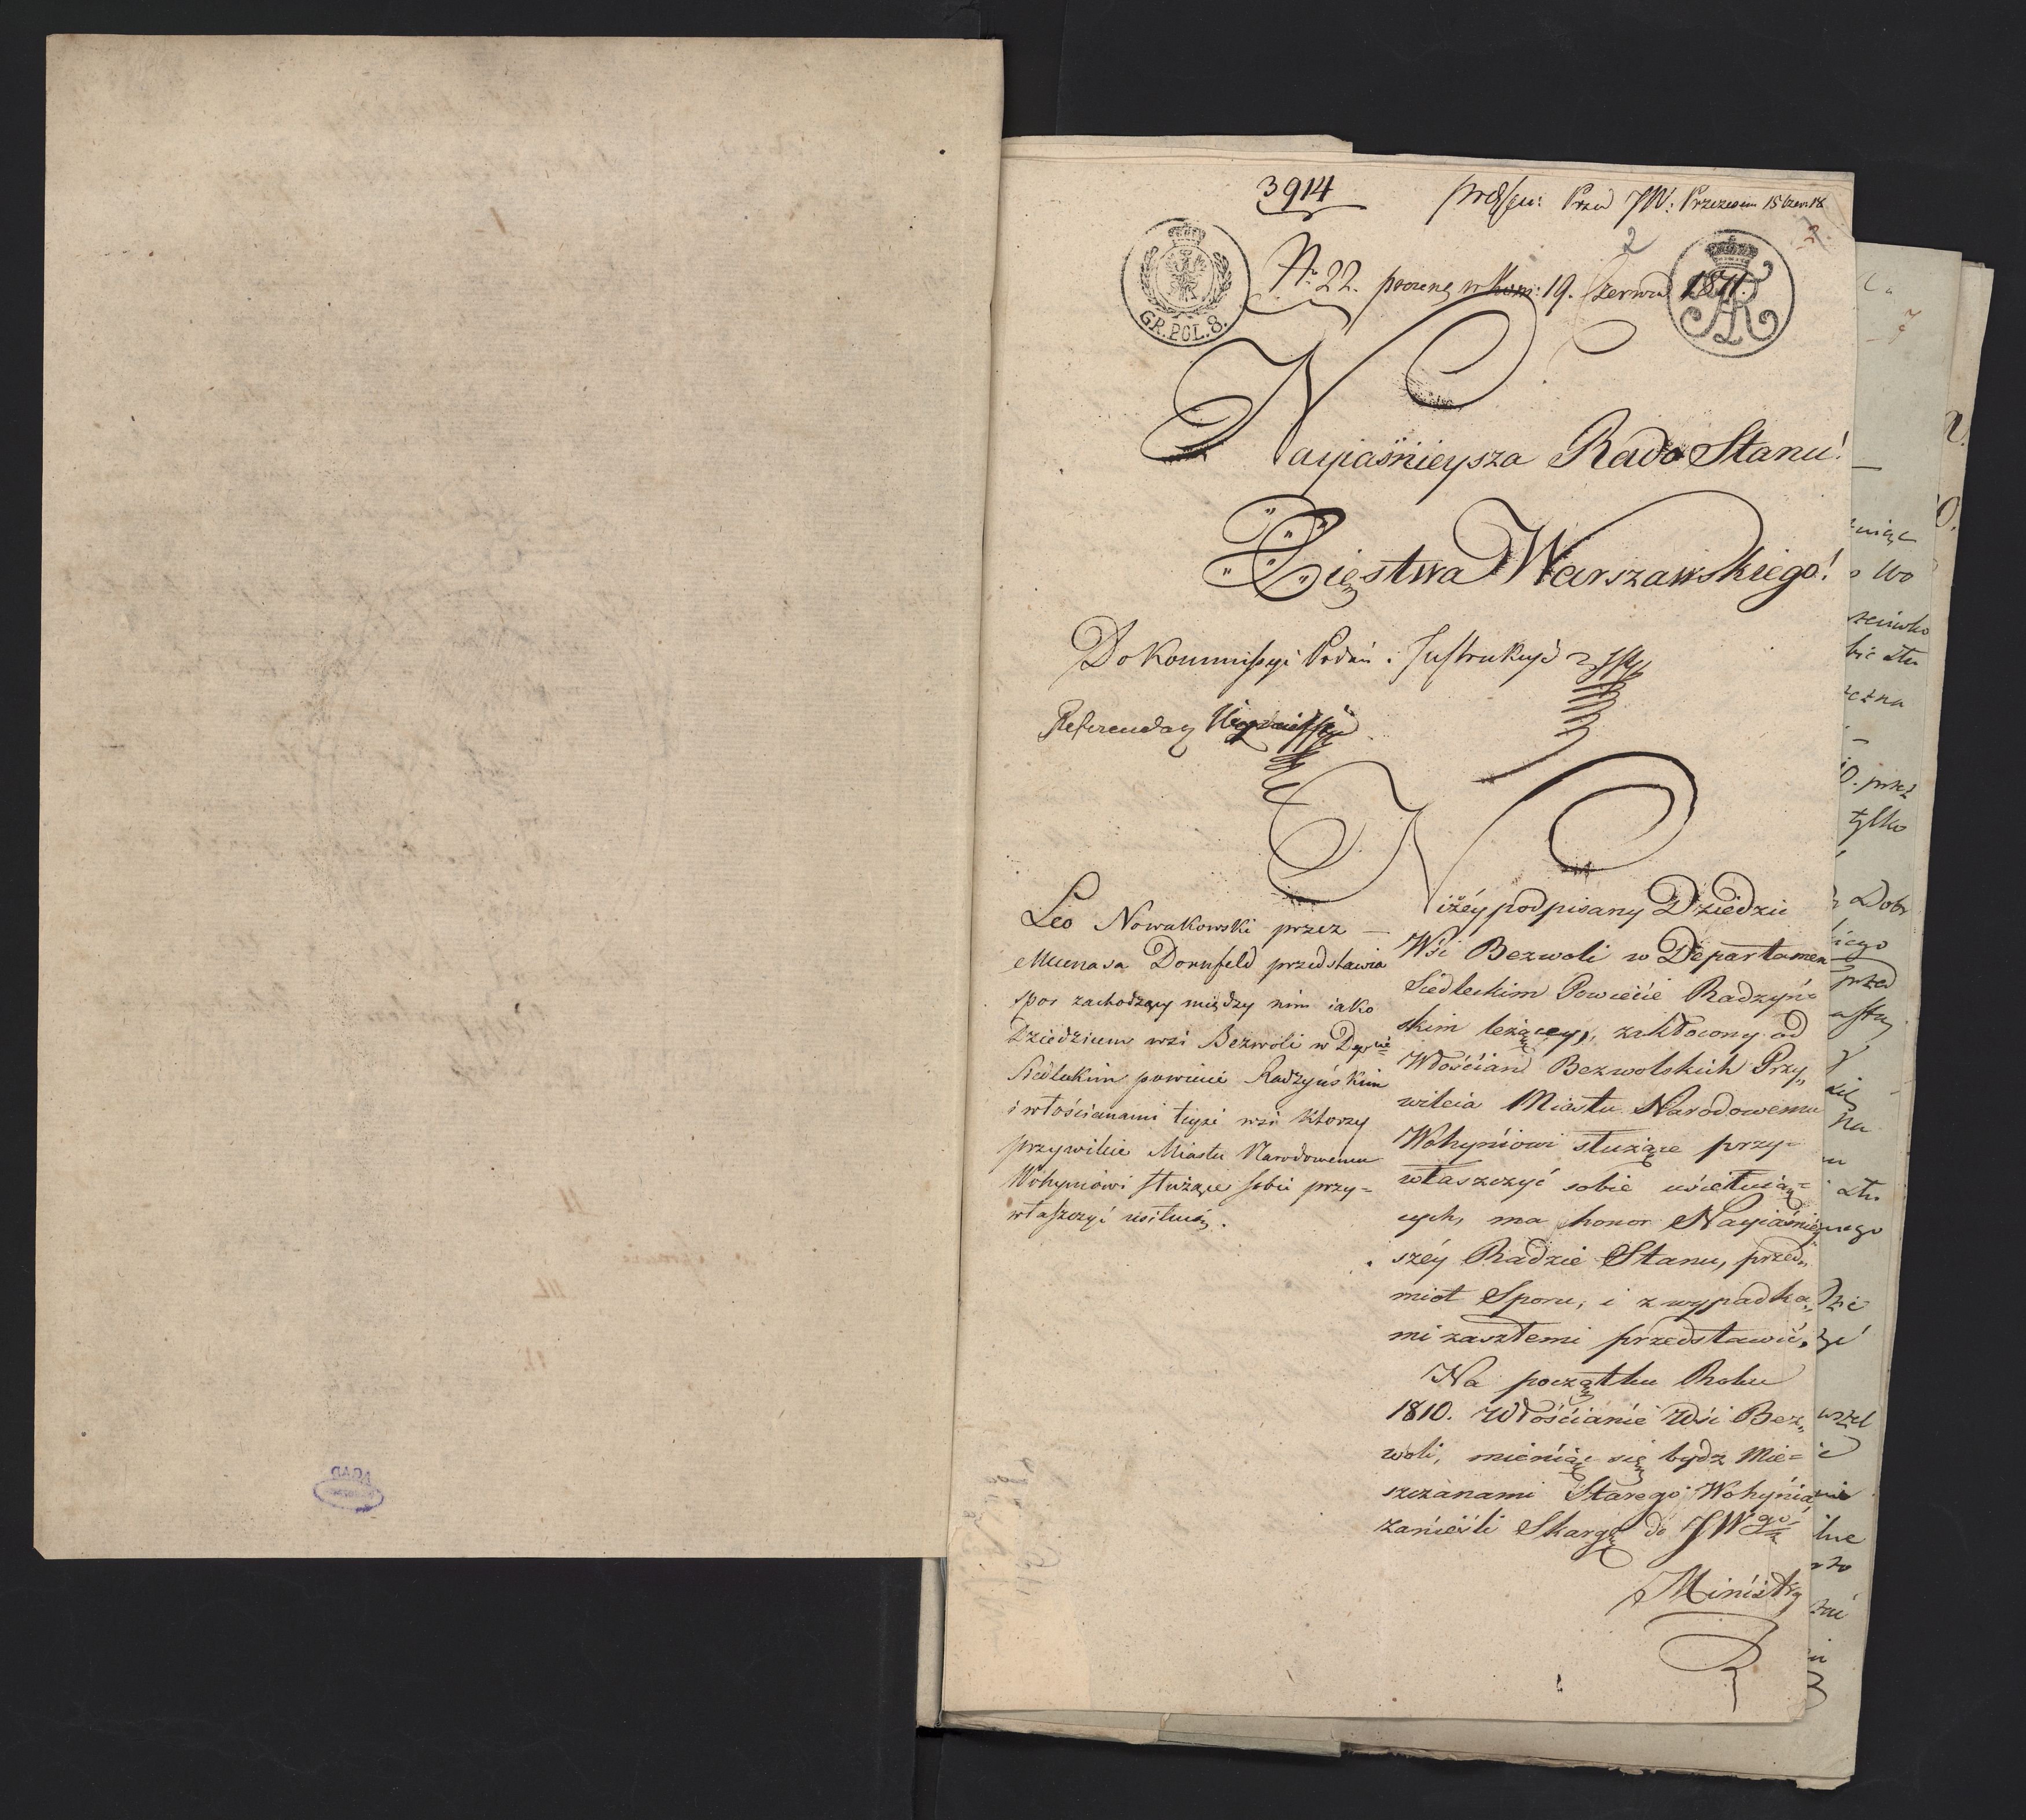 3914
Przed JW: Prezesem 15 Czer: 18
2
GR. POL. 8.
Nr. 22. prozent w Kom: 19. Czerwca 1811.
Nayiaśnieysza Rado Stanu!
Xięstwa Warszawskiego!
Do Kommissyi Podań i Instrukcyi
Referendarz
Leo Nowakowski przez —
Mena sa Dornfeld przedstawia
spor zachodzący między nim iako
Dziedzicem wsi Bezwoli w Dep
Siedleckim powiecie Radzyńskim
i włościanami teyże wsi którzy
przywileie Miastu Narodowemu
Wohyniowi służące sobie przy=
właszczyć usiłuią.
Niżéy podpisany Dziedzic
Wśi Bezwoli w Departamen
Siedleckim Powiecie Radzyń=
skim leżącey, zakłócony od
Włościan Bezwolskich Przy„
wileia Miastu Narodowemu
Wohyniowi służące przy=
właszczyć sobie uśiełuią=
cych, ma honor Nayiaśniey
széy Radzie Stanu, przed„
miot Sporu, i z wypadka„
mi zaszłemi przedstawić.
Na początku Roku
1810. Włościanie Wśi Bez„
woli, mieniąc się bydz Mie=
szczanami Starego Wohynia
zanieśli Skargę do JWgo
Ministra